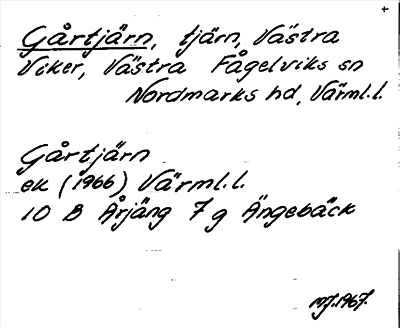 Gårtjärn, tjärn, Västra
Viker, Västra Fågelviks sn
Nordmarks hd, Värml.l.
Gårtjärn
ek (1966) Värml.l.
10 B Årjäng 7 g Ängebäck
1967.